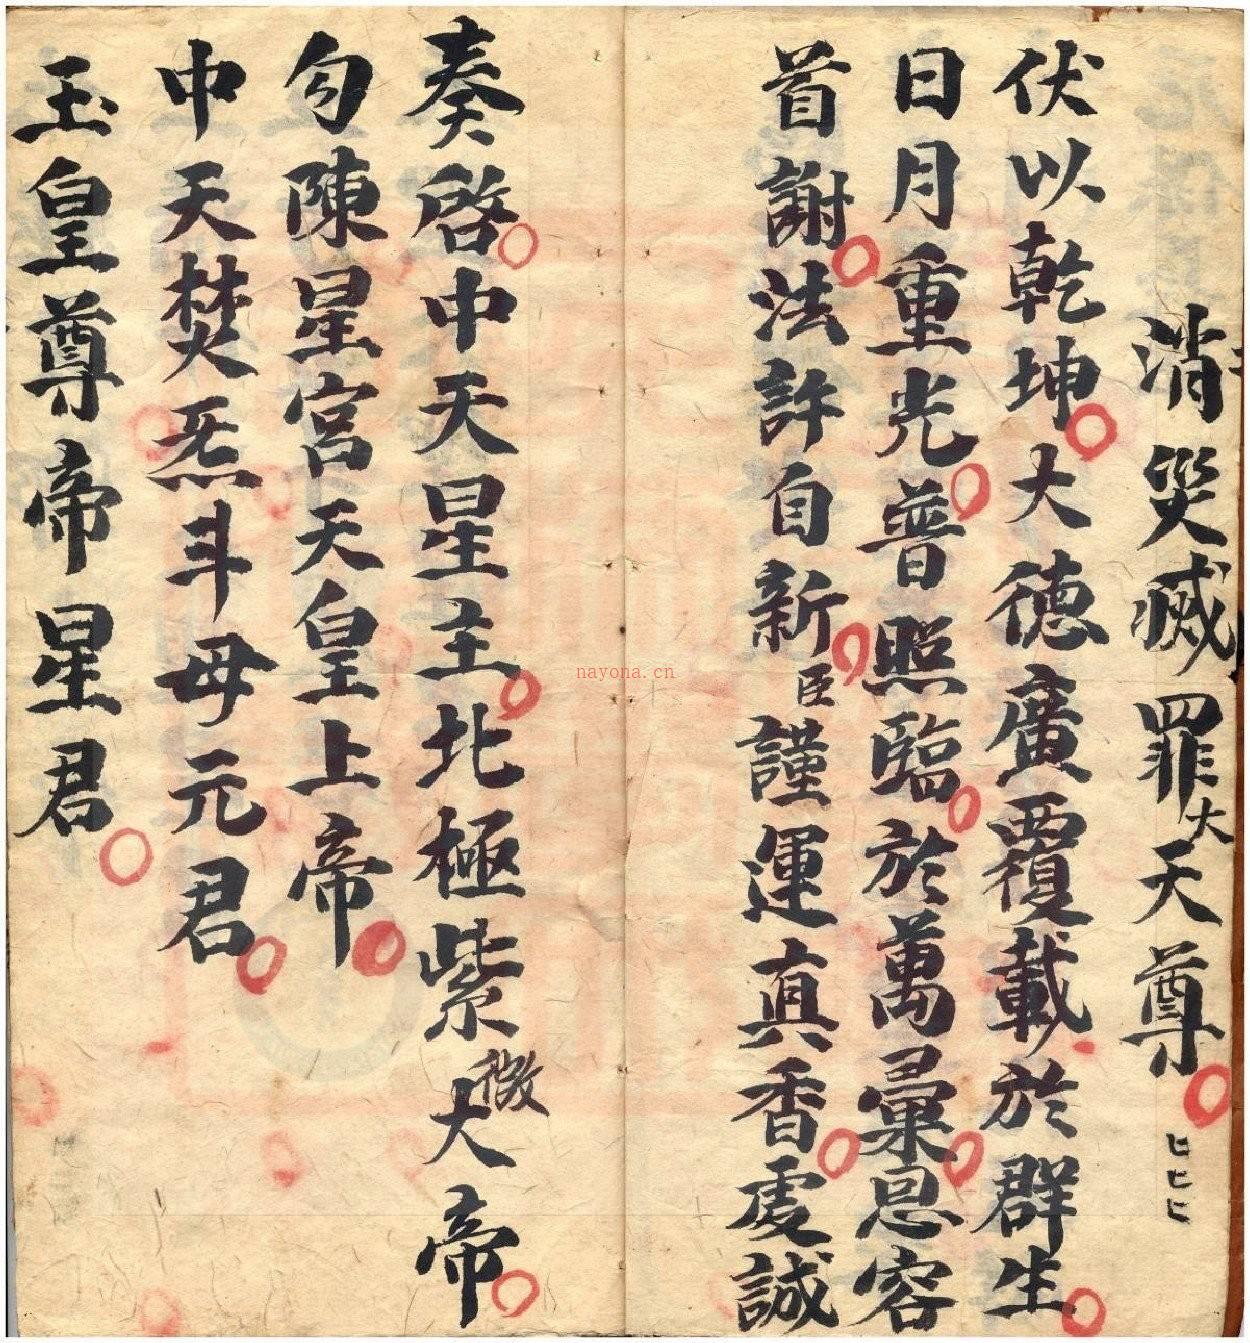 消災滅罪大天尊
伏以乾坤大德廣覆載於群生
日月重光普照臨於萬彙恩容
首謝法許自新臣謹運真香虔誠
奏啓中天星主北極紫微大帝
勾陳星宮天皇上帝
中天焚炁斗母元君
玉皇尊帝星君
nayona.cn